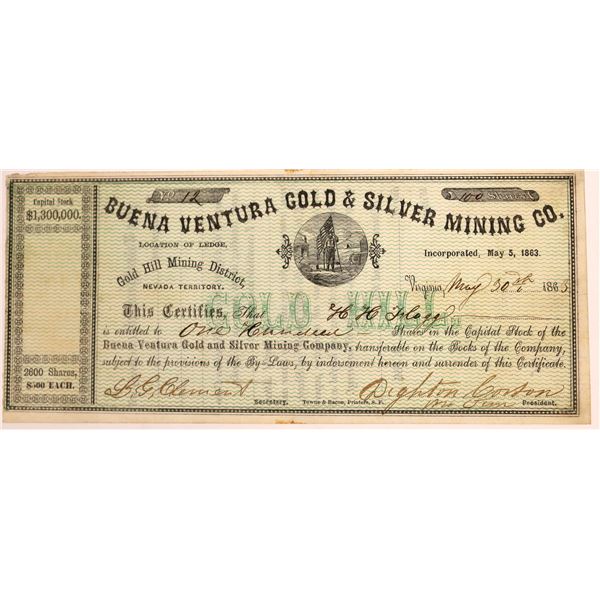 Capital Stock
$1,300,000.
2600 Shares,
$500 EACH.
No. 12
100 Shares
BUENA VENTURA GOLD & SILVER MINING CO.
LOCATION OF LEDGE,
Gold Hill Mining District,
NEVADA TERRITORY.
Incorporated, May 5, 1863.
Virginia, May 30th 1863
GOLD HILL
This Certifies, That H H Flagg
is entitled to One Hundred Shares in the Capital Stock of the
Buena Ventura Gold and Silver Mining Company, transferable on the Books of the Company,
subject to the provisions of the By-Laws, by indorsement hereon and surrender of this Certificate.
L. G. Clement
Secretary.
Towne & Bacon, Printers, S. F.
Dighton Corson
Pro Tem
President.